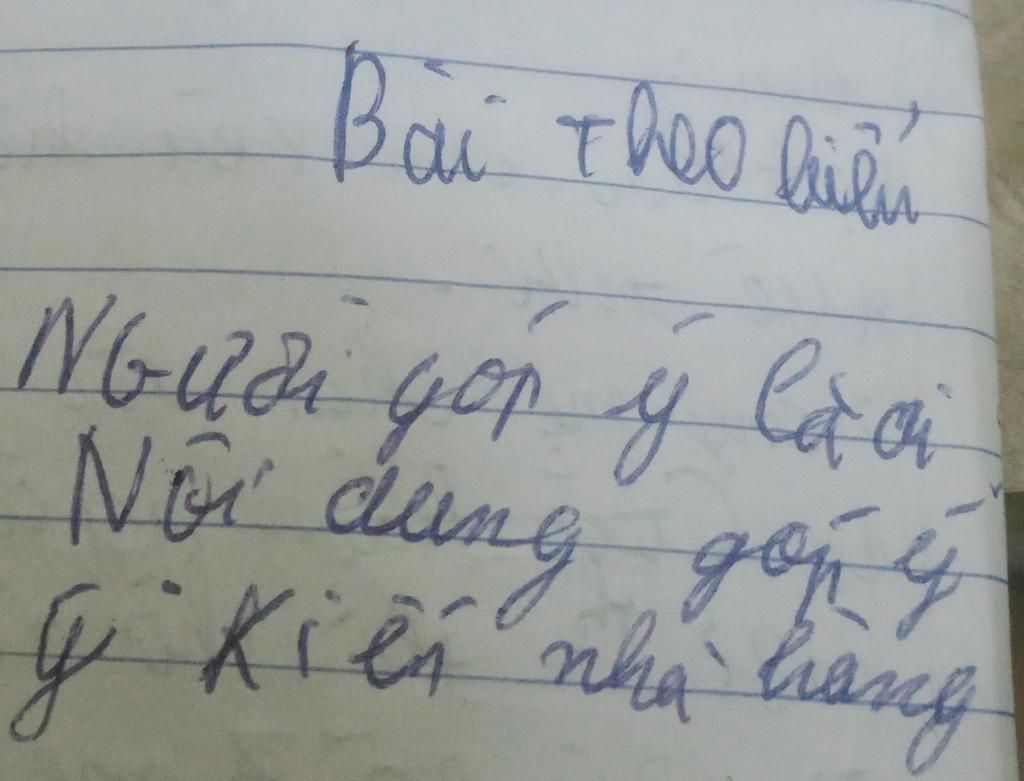 Bài theo kiến
Người góp ý là ai
Nội dung góp ý
ý Kiến nhà hàng